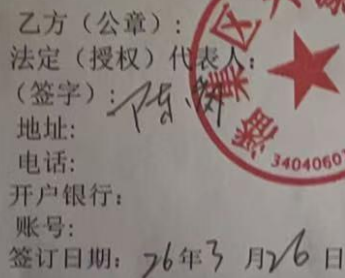 乙方（公章）：
法定（授权）代表人：
（签字）：陈
地址:
电话:
开户银行：
账号:
签订日期: 26年3月26日
潘集区
34040607